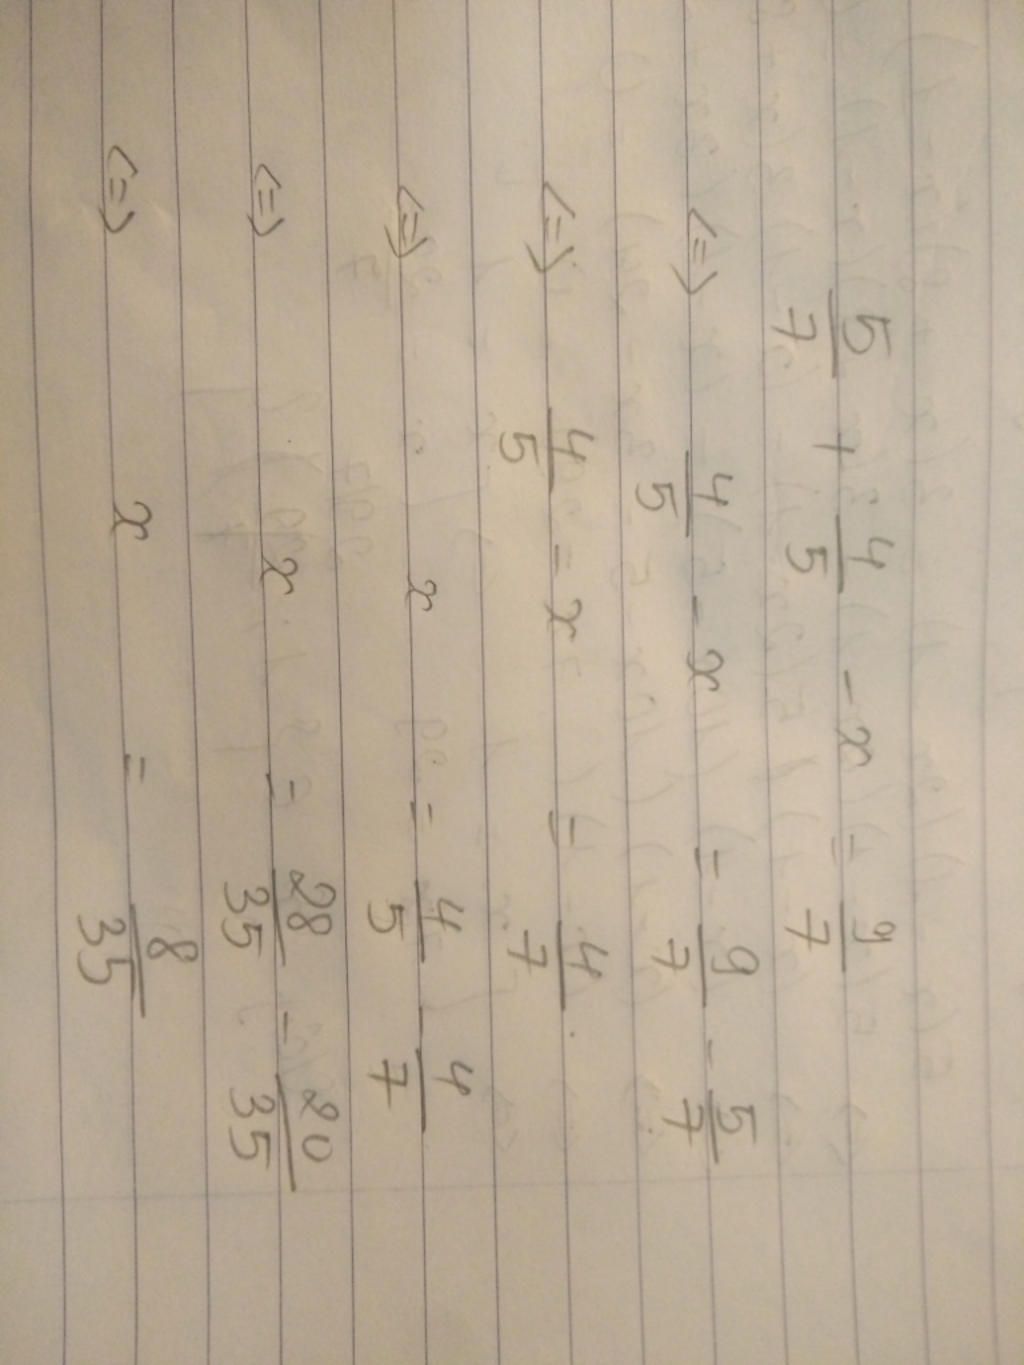 5/7 + 4/5 - x = 9/7
<=> 4/5 - x = 9/7 - 5/7
<=> 4/5 - x = 4/7
<=> x = 4/5 - 4/7
<=> x = 28/35 - 20/35
<=> x = 8/35